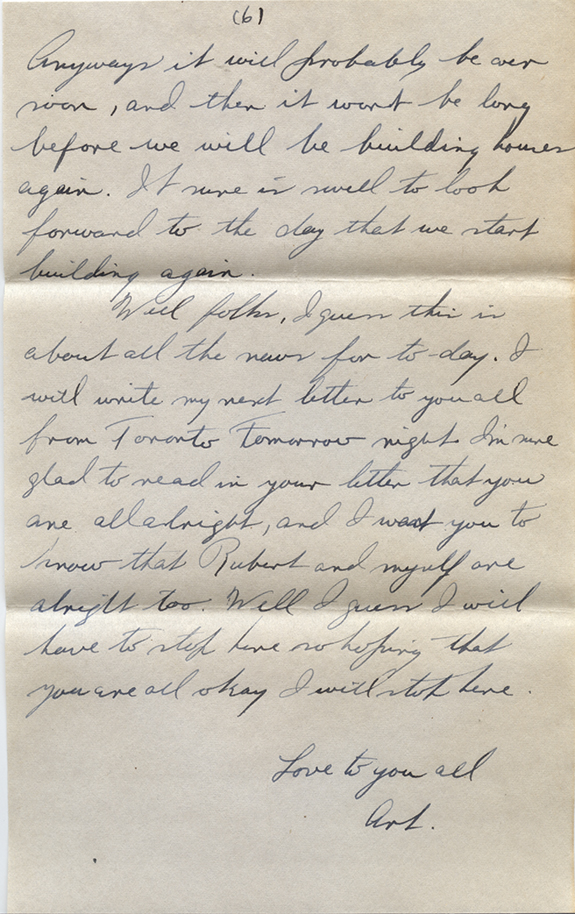 (6)
Anyways it will probably be over
soon, and then it wont be long
before we will be building houses
again. It sure is swell to look
forward to the day that we start
building again.
Well folks, I guess this is
about all the news for to-day. I
will write my next letter to you all
from Toronto tomorrow night. I'm sure
glad to read in your letter that you
are all alright, and I want you to
know that Rubert and myself are
alright too. Well I guess I will
have to stop here so hoping that
you are all okay I will stop here.
Love to you all
Art.